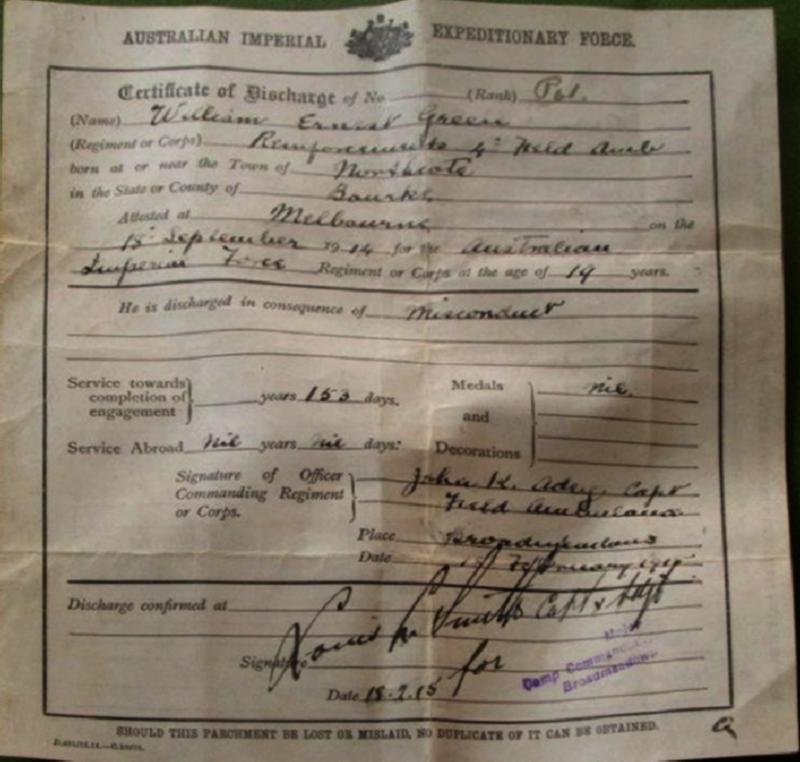 AUSTRALIAN IMPERIAL EXPEDITIONARY FORCE.
Certificate of Discharge of No. (Rank) Pvt.
(Name) William Ernest Green
(Regiment or Corps) Reinforcements 4th Field Amb
born at or near the Town of Northcote
in the State or County of Bourke
Attested at Melbourne on the
18th September 1914 for the Australian
Imperial Force Regiment or Corps at the age of 19 years.
He is discharged in consequence of Misconduct
Service towards completion of engagement years 153 days.
Medals and Decorations nil.
Service Abroad nil years nil days.
Signature of Officer Commanding Regiment or Corps. John K. Adey, Capt
Field Ambulance
Place Broadmeadows
Date February
Discharge confirmed at
Signature Smith Capt & Adjt
for
Major
Camp Commandant
Broadmeadows
Date 18.2.15
SHOULD THIS PARCHMENT BE LOST OR MISLAID, NO DUPLICATE OF IT CAN BE OBTAINED.